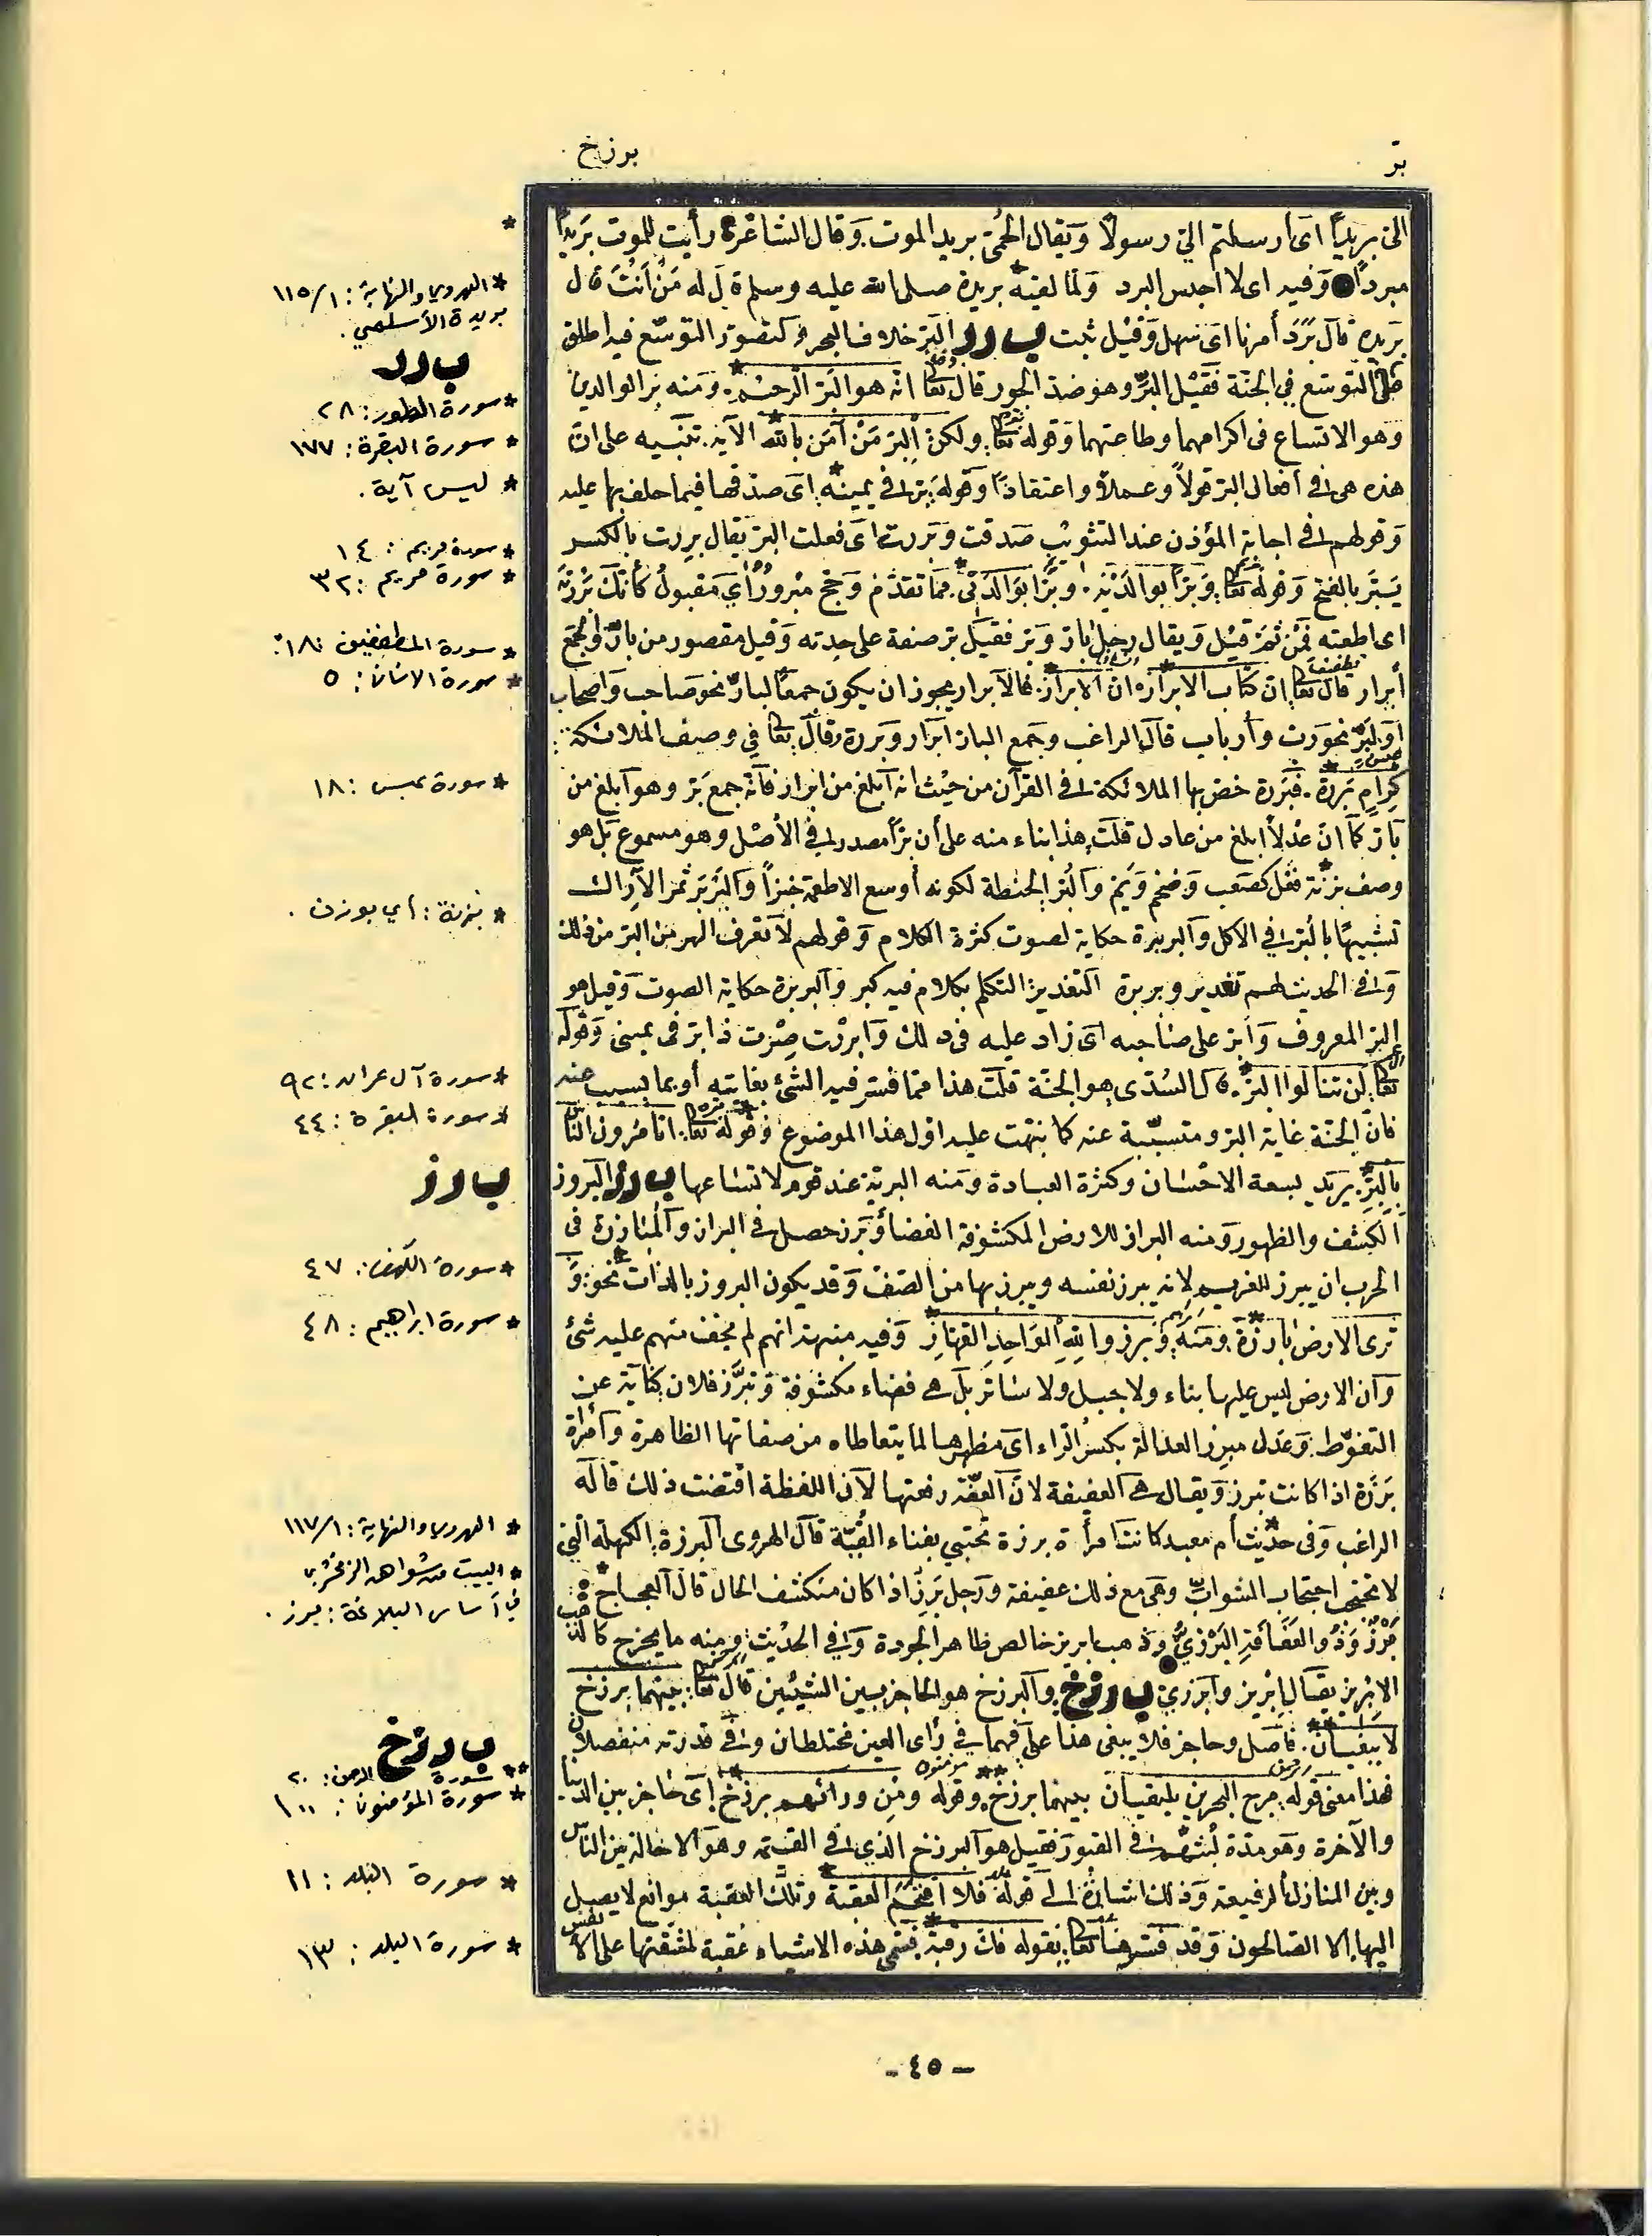 بر
برزخ
إلىّ بريدًا اى أرسلتم إلىّ رسولًا ويقال الحُمّى بريد الموت وقال الشاعر رأيت للموت بريدًا
مبردًا وفيه اى لا احبس البرد ولمّا لقيه بريدة صلى الله عليه وسلم قال له مَنْ أنتَ قال
بريدة قال بَرَدَ أمرنا اى سهل وقيل ثبت ب ر ر البَرّ خلاف البحر وتصوّر التوسّع فيه اطلق
على التوسّع في الجنّة فقيل البِرّ وهو ضدّ الجور قال تعا انه هو البَرّ الرحيم. ومنه برّ الوالدين
وهو الاتساع فى اكرامهما وطاعتهما وقوله تعا ولكن البرّ مَنْ آمَن بالله الآية. تنبيه على انّ
هذه هى أفعال البرّ قولًا وعملًا واعتقادًا وقوله برّ في يمينه اى صدّقها فيما حلف بها عليه
وقولهم فى اجابة المؤذن عند التثويب صدقت وبررت اى فعلت البرّ يقال بررت بالكسر
يبَرّ بالفتح وقوله تعا وبرًّا بوالدَيْه. وبرًّا بوالدتى. ممّا تقدّم وحجّ مبرورٌ أي مقبولٌ كأنك بررته
اى اطعته فمن ثمّ قيل ويقال رجل بارّ وبرّ فقيل برّ صفة على حدته وقيل مقصور من بارّ والجمع
أبرار قال تعا ان كتاب الابرار. ان الابرار. فالأبرار يجوز ان يكون جمعًا لبارّ نحو صاحب وأصحاب
أو لبَرّ نحو ربّ وأرباب قال الراغب وجمع البارّ أبرار وبررة وقال تعا في وصف الملائكة:
كِرامٍ بَرَرَة. فبَرَرة خصّ بها الملائكة في القرآن من حيث انه أبلغ من ابرار فانّه جمع بَرّ وهو أبلغ من
بارّ كما انّ عَدْلًا ابلغ من عادل قلت هذا بناء منه على أن برًّا مصدر في الأصل وهو مسموع بل هو
وصف بزنة فَعْل كصَعب وضَخم والبُرّ الحنطة لكونه أوسع الاطعمة خبزًا والبَرير ثمر الأراك
تشبيهًا بالبُرّ في الاكل والبربرة حكاية لصوت كثرة الكلام وقولهم لا يعرف الهرّ من البرّ من ذلك
وفى الحديث لهم تغذمر وبربرة التغذمر التكلم بكلام فيه كبر والبربرة حكاية الصوت وقيل هو
البرّ المعروف وأبرّ على صاحبه اى زاد عليه فى ذلك وابررت صرت ذا برّ فى يمينى وقوله
تعا لن تنالوا البرّ. قال السُدّى هو الجنّة قلت هذا ممّا فسّر فيه الشئ بغايته أو بما يسبّب عنه
فانّ الجنّة غاية البرّ ومتسبّبة عنه كما نبّهت عليه اول هذا الموضوع وقوله تعا اتأمرون الناس
بالبِرّ. يريد لسعة الاحسان وكثرة العبادة ومنه البريّة عند قوم لاتساعها ب ر ز البروز
الكشف والظهور ومنه البراز للارض المكشوفة الفضاء وبرز حصل في البراز والمبارزة فى
الحرب ان يبرز للغريم لانه يبرز نفسه ويبرز بها من الصفّ وقد يكون البروز بالذات نحو: و
ترى الارض بارزة. ومنه. وبرزوا لله الواحد القهّار. وفيه منبهة انهم لم يخف منهم عليه شئ
وأن الارض ليس عليها بناء ولا جبل ولا ساتر بل هى فضاء مكشوفة وتبرَّز فلان كناية عن
التغوّط. وعدل مبرز العدالة بكسر الراء اى مظهرها لما يتعاطاه من صفاتها الظاهرة وامرأة
بَرْزَة اذا كانت تبرز ويقال هى العفيفة لانّ العفّة رفعتها لا أن اللفظة اقتضت ذلك قاله
الراغب وفى حديث أم معبد كانت امرأة برزة تحتبي بفناء القبّة قال الهروى البرزة الكهلة التي
لا تحتجب احتجاب الشوابّ وهى مع ذلك عفيفة ورجل بَرز اذا كان منكشف الحال قال العجاج
بَرْزٌ وذو العفافة البَرْزيّ وذهب ابريز خالص ظاهر الجودة وفي الحديث ومنه ما يخرج كالذهب
الابريز يقال ابريز وابرزي ب ر ز خ والبرزخ هو الحاجز بين الشيئين قال تعا بينهما برزخ
لا يبغيان. فاصل وحاجز فلا يبغى هذا على فهما في رأى العين مختلطان وفى قدرته منفصلان
فهذا معنى قوله مرج البحرين يلتقيان بينهما برزخ. وقوله ومن ورائهم برزخ اى حاجز بين الدنيا
والآخرة وهو مدة لبثهم فى القبور فقيل هو البرزخ الذي فى القيمة وهو الاحالة بين الناس
وبين المنازل الرفيعة وذلك اشارة الى قوله فلا اقتحم العقبة وتلك العقبة موانع لا يصل
اليها الا الصالحون وقد فسّرها تعا بقوله فك رقبة. فسمّى هذه الاشياء عقبة لمشقّتها على الأنفس
*
* الهروي والنهاية: ١/١١٥
بريدة الأسلمي.
ب ر ر
* سورة الطور: ٢٨
* سورة البقرة: ١٧٧
* ليس آية.
* سورة مريم: ١٤
* سورة مريم: ٣٢
* سورة المطففين: ١٨
* سورة الانسان: ٥
* سورة عبس: ١٨
* بزنة: أي بوزن.
* سورة آل عمران: ٩٢
* سورة البقرة: ٤٤
ب ر ز
* سورة الكهف: ٤٧
* سورة ابراهيم: ٤٨
* الهروي والنهاية: ١/١١٧
* البيت من شواهد الزمخشري
في أساس البلاغة: برز.
ب ر ز خ
** سورة الرحمن: ٢٠
* سورة المؤمنون: ١٠٠
* سورة البلد: ١١
* سورة البلد: ١٣
- ٤٥ -